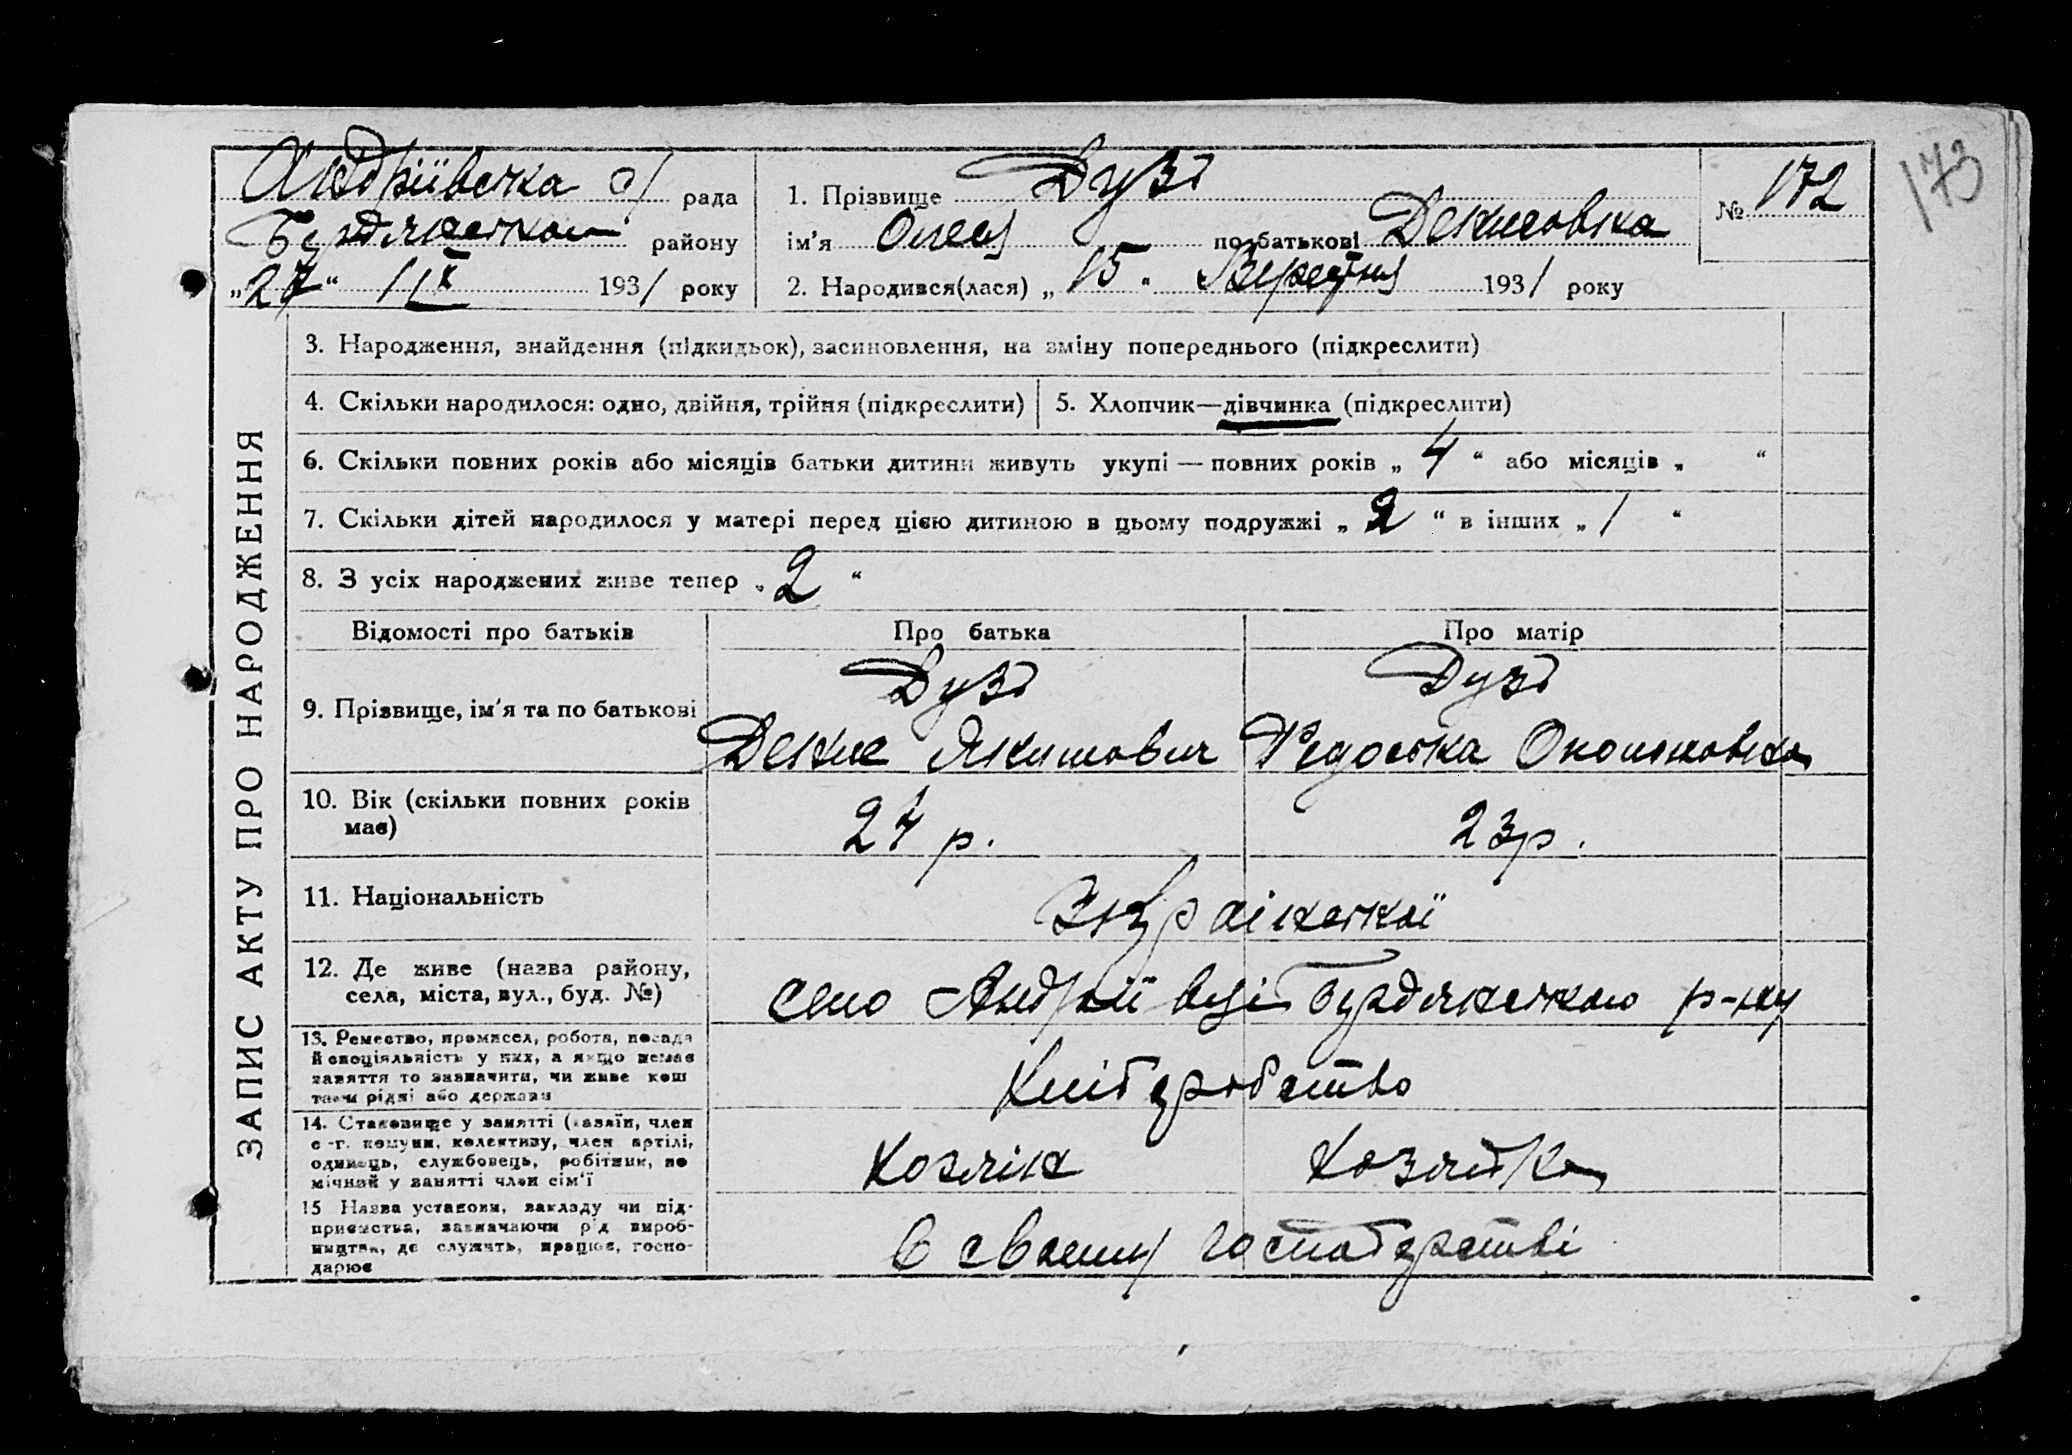 Андріівська с/ рада
Бердянського району
„27“ IX 1931 року
1. Прізвище Дузь
ім'я Олеся по батькові Денисовна
2. Народився(лася) „15“ Вересня 1931 року
№ 172
173
ЗАПИС АКТУ ПРО НАРОДЖЕННЯ
3. Народження, знайдення (підкидьок), засиновлення, на зміну попереднього (підкреслити)
4. Скільки народилося: одно, двійня, трійня (підкреслити)
5. Хлопчик—дівчинка (підкреслити)
6. Скільки повних років або місяців батьки дитини живуть укупі — повних років „4“ або місяців „ “
7. Скільки дітей народилося у матері перед цією дитиною в цьому подружжі „2“ в інших „1“
8. З усіх народжених живе тепер „2“
Відомості про батьків Про батька Про матір
9. Прізвище, ім'я та по батькові
Дузь Дузь
Денис Якимович Федоська
10. Вік (скільки повних років
має)
24 р. 23 р.
11. Національність
Української
12. Де живе (назва району,
села, міста, вул., буд. №)
село Андріївці Бердянського р-ну
13. Ремество, промисел, робота, посада
й спеціяльність у них, а якщо немає
заняття то зазначити, чи живе кош
том рідні або держави
Хліборобство
14. Становище у занятті (хазяїн, член
с.-г. комуни, колективу, член артілі,
одинець, службовець, робітник, по
мічний у занятті член сім'ї
Хозяін Хозяйка
15 Назва установи, закладу чи під-
приємства, зазначаючи рід вироб-
ництва, де служить, працює, госпо-
дарює
В своему господарстві